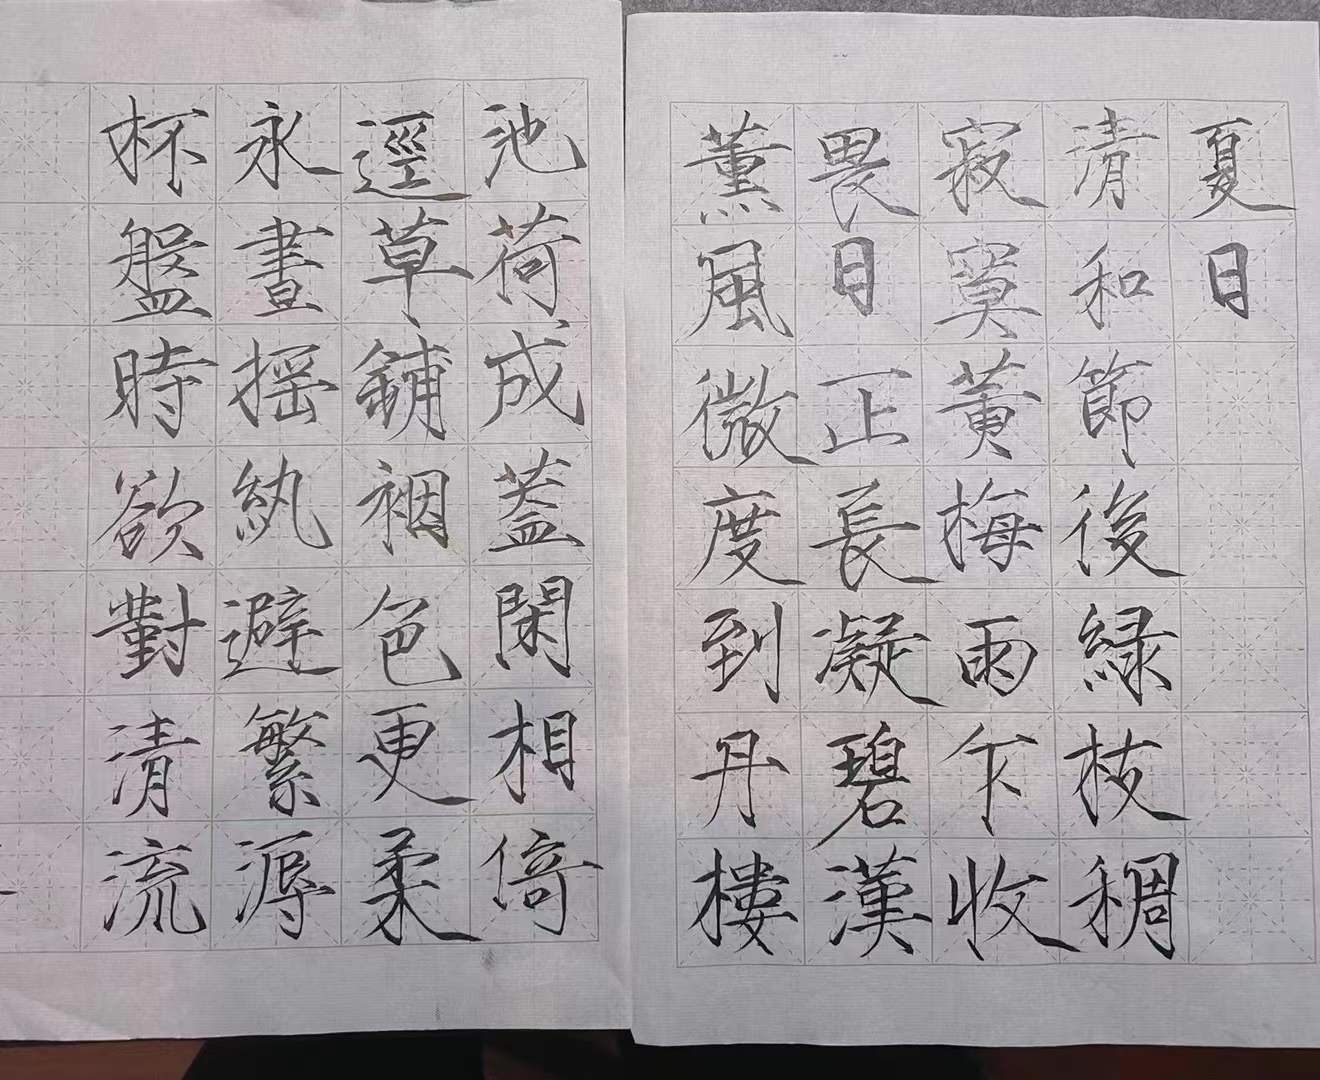 夏日
清和節後緑枝稠
寂寞黄梅雨乍收
畏日正長凝碧漢
薰風微度到丹樓
池荷成蓋閑相倚
逕草鋪裀色更柔
永晝摇紈避繁溽
杯盤時欲對清流